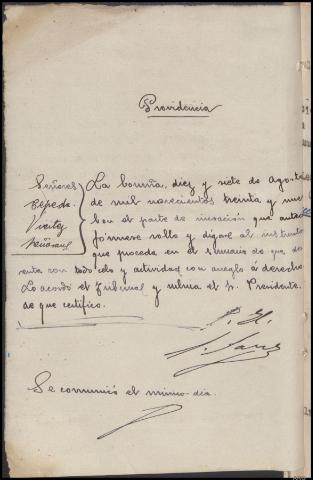 Providencia
Señores
Cepeda
Vieitez
La Coruña, diez y siete de Agosto
de mil novecientos treinta y nue
Con el parte de incoación que antecede
fórmese rollo y dígase al instructor
que proceda en el sumario de que da
cuenta con todo celo y actividad con arreglo á derecho
Lo acordó el Tribunal y rubrica el Sr. Presidente,
de que certifico.
Se comunicó el mismo día.